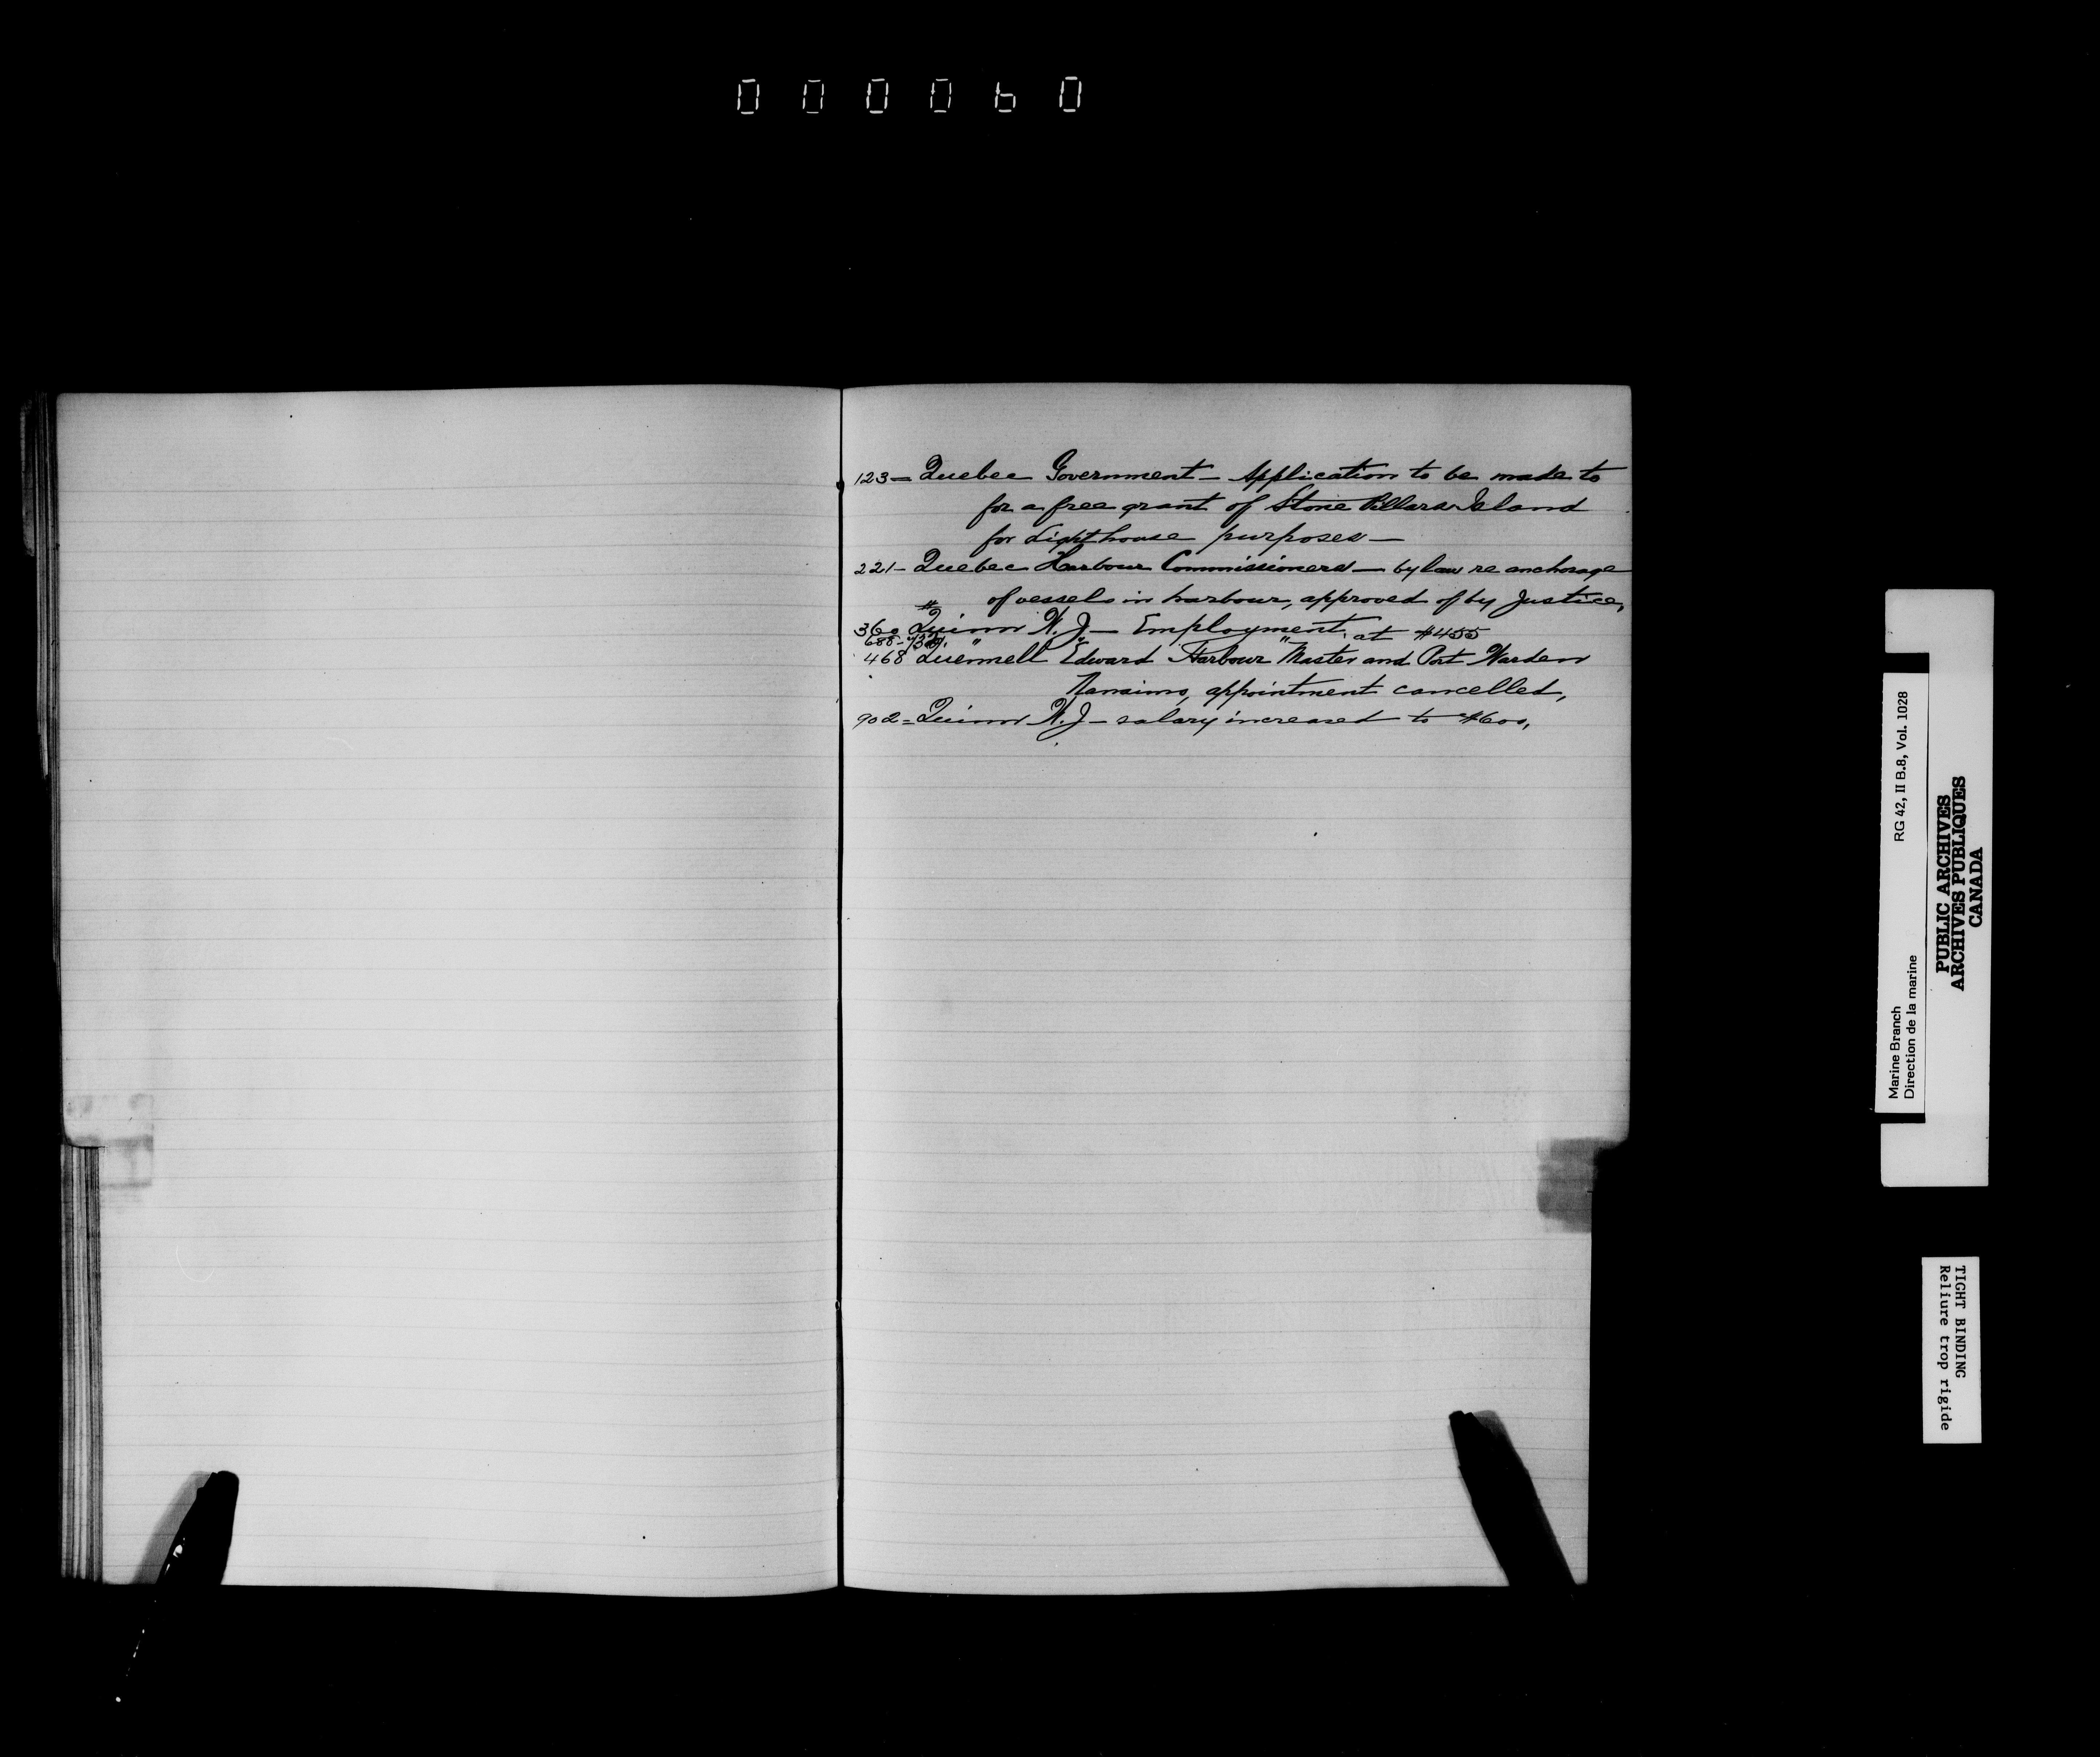 000060
123 = Quebec Government - Application to be made to
for a free grant of Stone Pillars Island
for Lighthouse purposes -
221 - Quebec Harbour Commissioners - by law re anchorage
of vessels in harbour, approved of by Justice,
360 Quinn W. J. - Employment, at $455
688 - " " "
468 Quennell Edward Harbour Master and Port Warden
Nanaimo, appointment cancelled,
902 = Quinn W. J - salary increased to $600,
Marine Branch RG 42, II B.8, Vol. 1028
Direction de la marine
PUBLIC ARCHIVES
ARCHIVES PUBLIQUES
CANADA
TIGHT BINDING
Reliure trop rigide